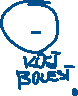 KOJ
BOLEST